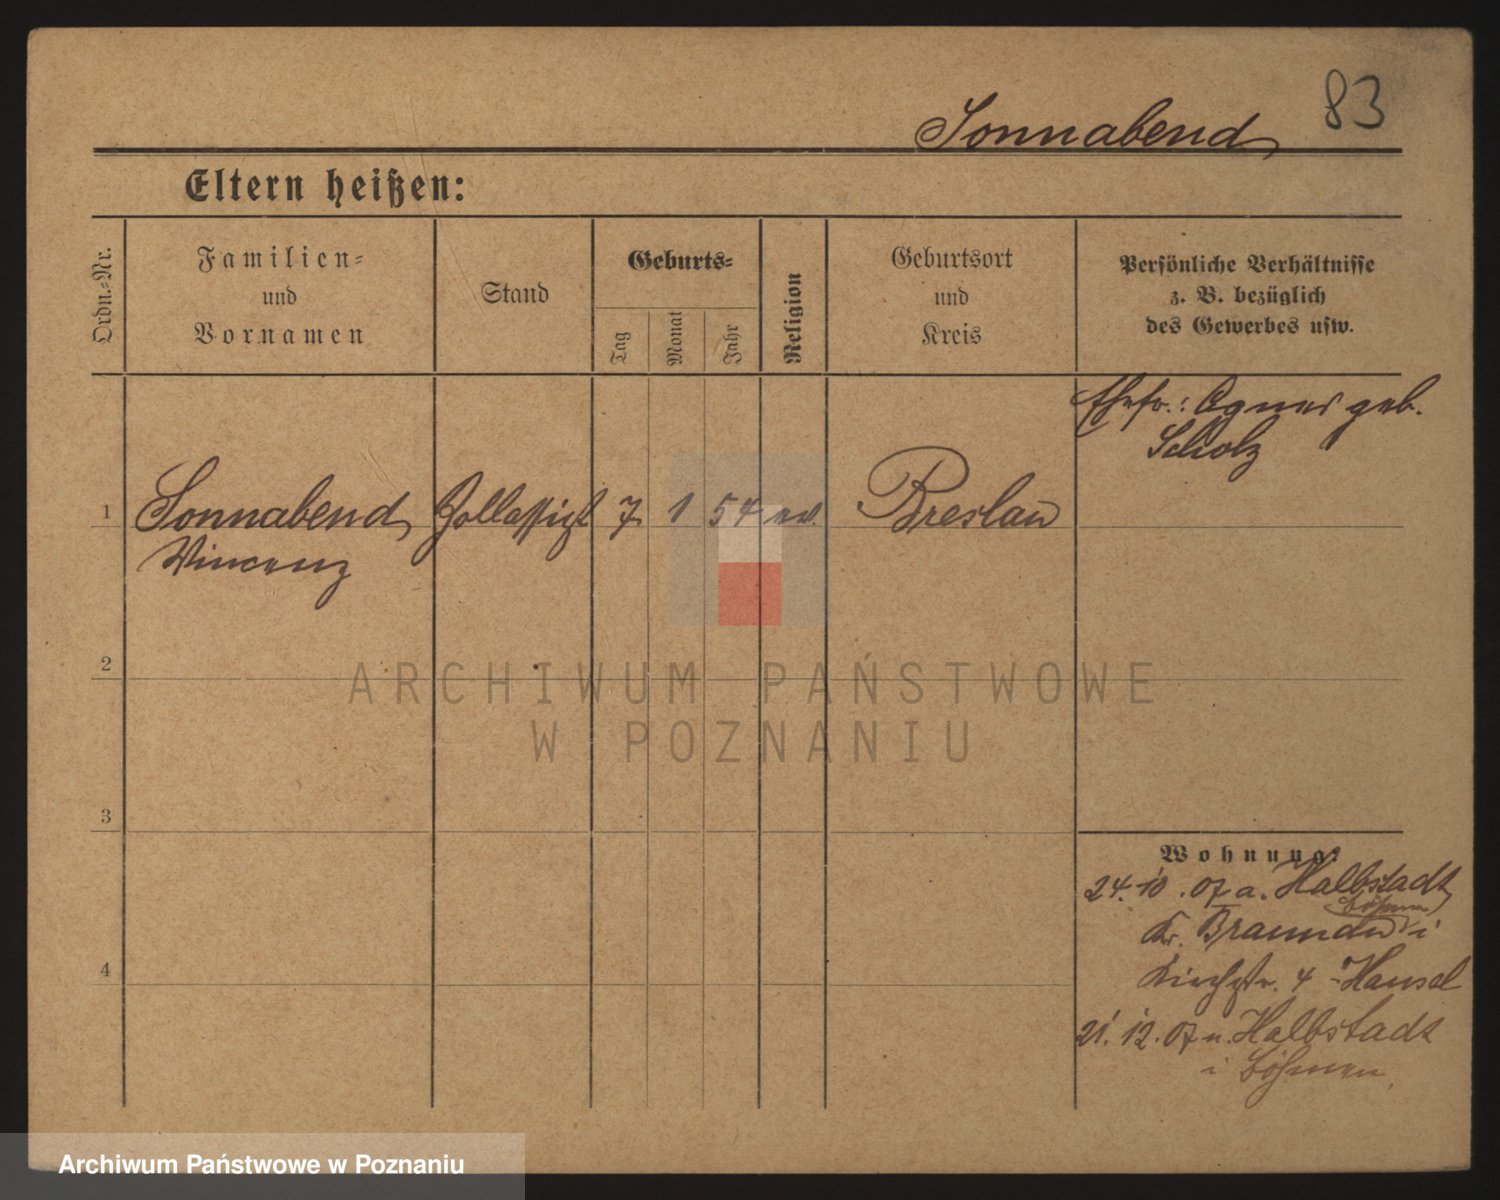 83
Sonnabend
Eltern heißen:
Ordn.-Nr.
Familien-
und
Vornamen
Stand
Geburts-
Tag
Monat
Jahr
Religion
Geburtsort
und
Kreis
Persönliche Verhältnisse
z. B. bezüglich
des Gewerbes usw.
Ehefr.: Agnes geb.
Scholz
1 Sonnabend Zollassist 7 1 54 ev. Breslau
Wincenz
2
ARCHIWUM PAŃSTWOWE
W POZNANIU
3
Wohnung:
24. 10. 07 a. Halbstadt
Böhmen
Kr. Braunau i
Kirchstr. 4 Hansel
4
21. 12. 07 n. Halbstadt
i Böhmen.
Archiwum Państwowe w Poznaniu